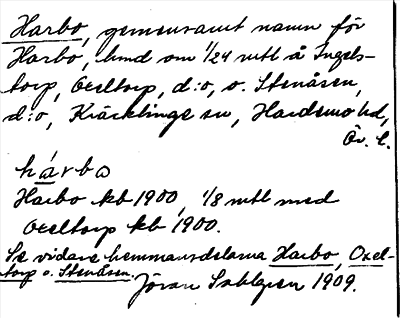 Harbo, gemensamt namn för
Harbo, hmd om 1/24 mtl å Ingels-
torp, Oxeltorp, d:o, o. Stenåsen,
d:o, Kräcklinge sn, Hardemo hd,
Ör. l.
hárbo
Harbo kb 1900, 1/8 mtl med
Oxeltorp kb 1900.
Se vidare hemmansdelarna Harbo, Oxel-
torp o. Stenåsen.
Jöran Sahlgren 1909.